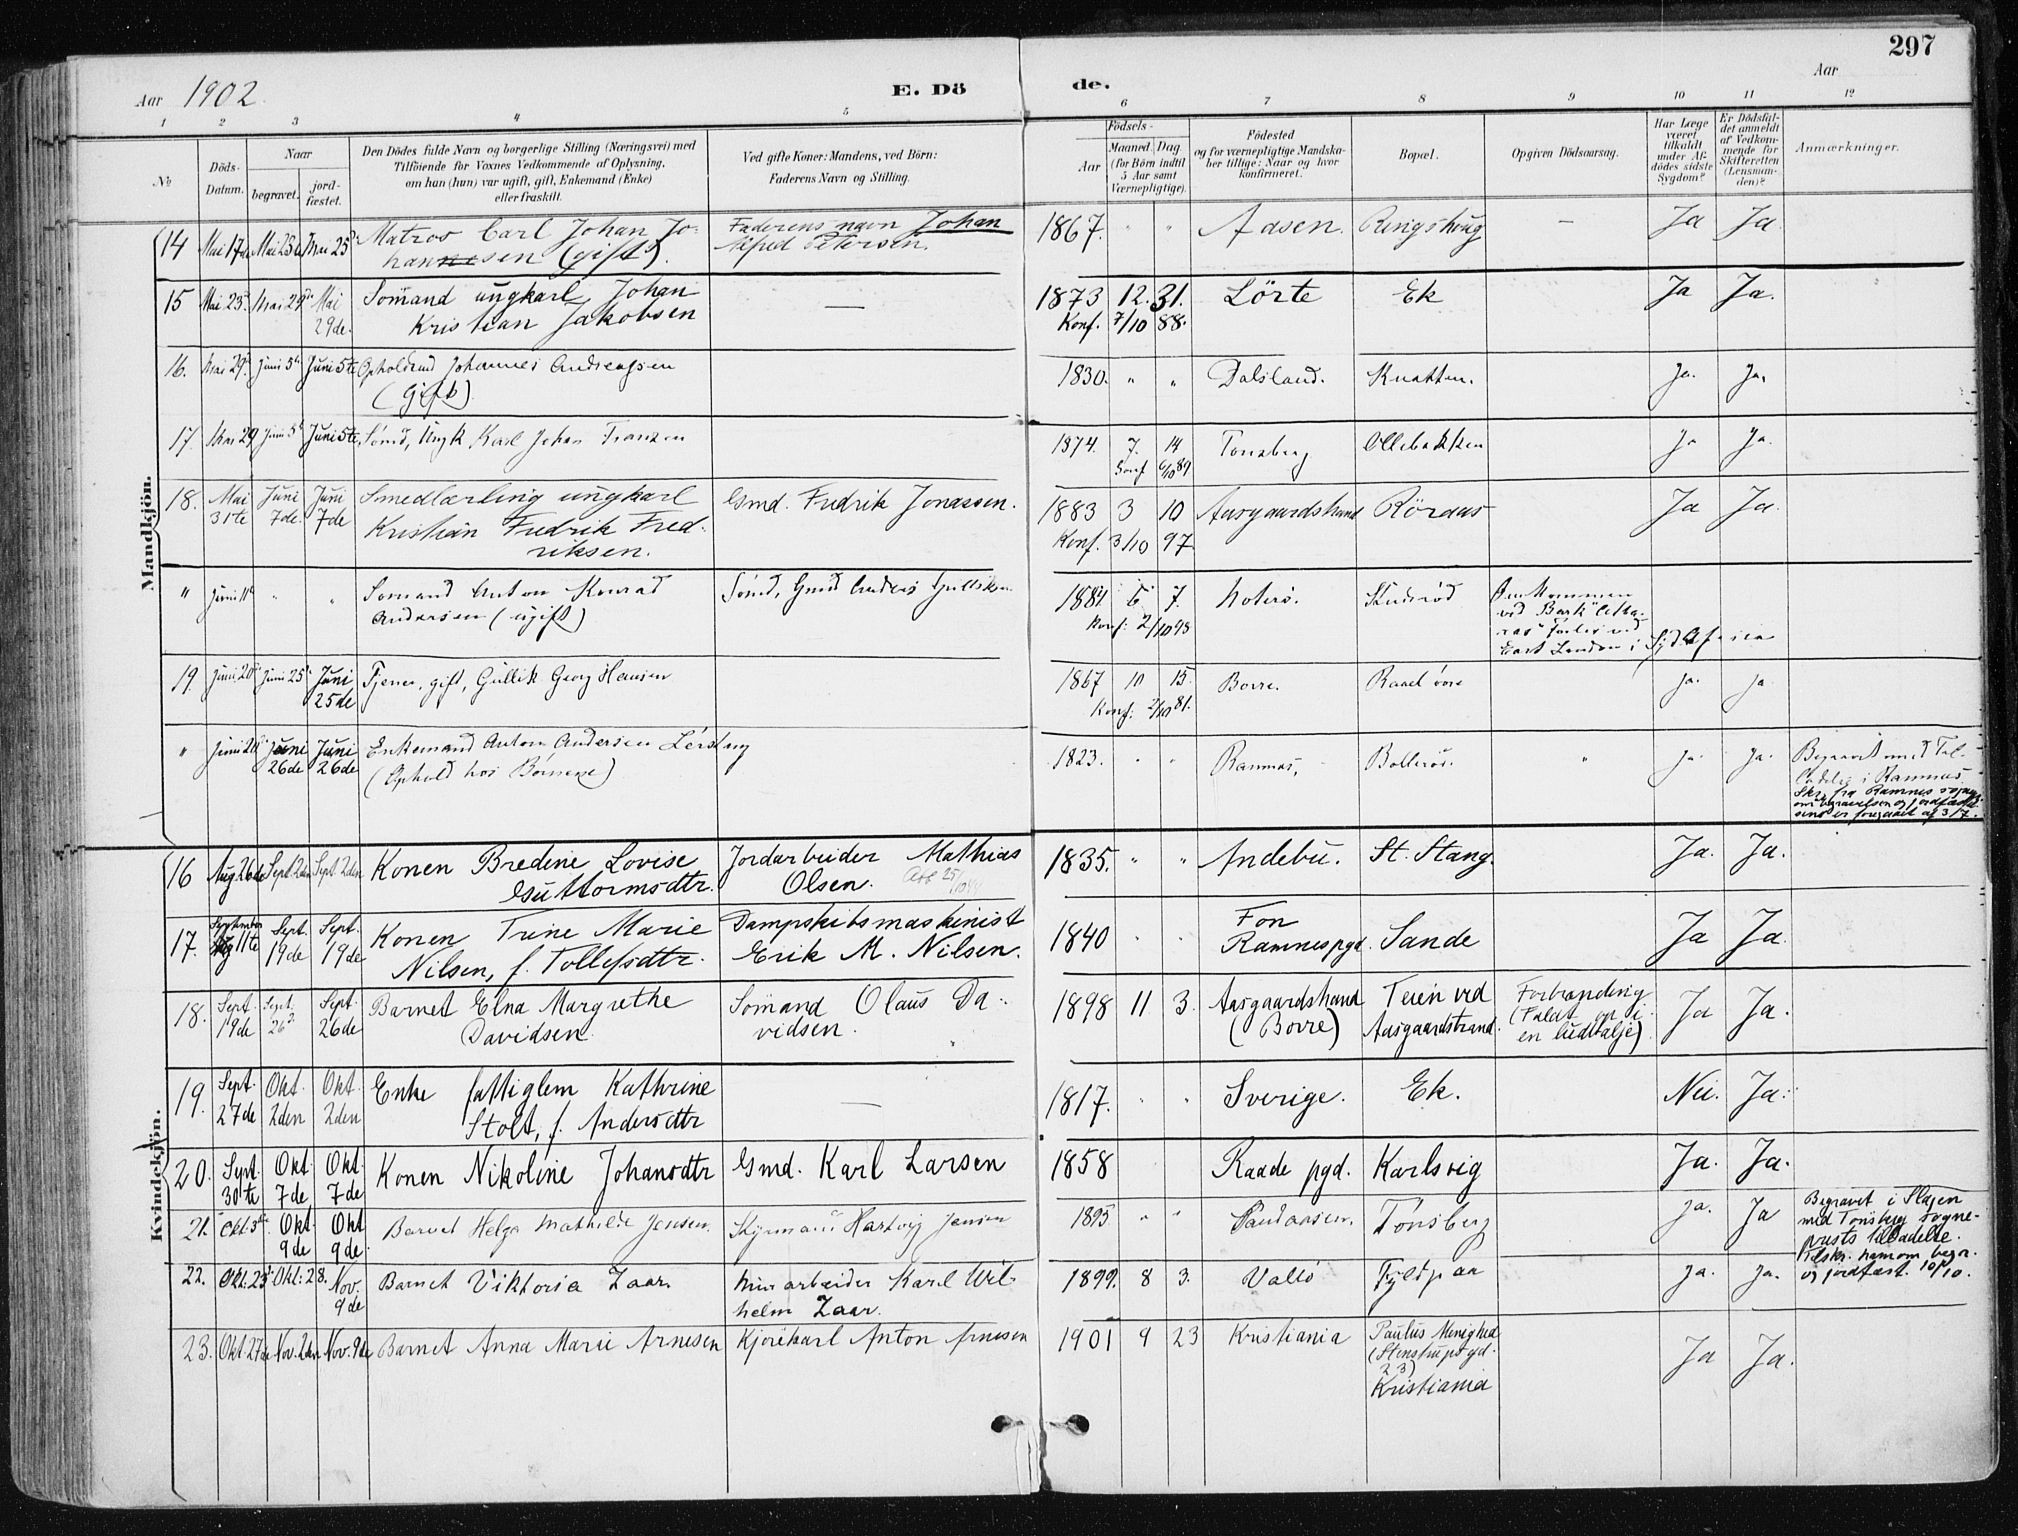 297
Aar 1902. E. Döde. Aar
1 2 3 4 5 6 7 8 9 10 11 12
№
Döds-Datum.
Naar
begravet.
jord-fæstet.
Den Dödes fulde Navn og borgerlige Stilling (Næringsvei) med
Tilföiende for Voxnes Vedkommende af Oplysning,
om han (hun) var ugift, gift, Enkemand (Enke)
eller fraskilt.
Ved gifte Koner: Mandens, ved Börn:
Faderens Navn og Stilling.
Födsels-
Aar
Maaned. Dag
(for Börn indtil
5 Aar samt
Værnepligtige).
Födested
og for værnepligtige Mandska-
ber tillige: Naar og hvor
konfirmeret.
Bopæl.
Opgiven Dödsaarsag.
Har Læge
været
tilkaldt
under Af-
dödes sidste
Sygdom?
Er Dödsfal-
det anmeldt
af Vedkom-
mende for
Skifteretten
(Lensman-
den)?
Anmærkninger.
Mandkjön.
14 Mai 17de Mai 25de Mai 25de Matros Carl Johan Jo- Faderens navn Johan 1867. " " Aasen. Ringshoug — Ja Ja
hannesen (gift). Alfred Petersen.
15 Mai 23de Mai 29de Mai 29de. Sömand ungkarl Johan — 1873 12. 31. Lörte Ek Ja Ja.
Kristian Jakobsen Konf. 7/10 88.
16. Mai 29de Juni 5te Juni 5te Opholdsmd Johannes Andreassen 1830. " " Dalsland. Knatten. Ja. Ja.
(Gift)
17. Mai 29 Juni 5te Juni 5te Sömd, Ungk Karl Johan Franzen 1874. 7. 14 Tonsberg Ollebakken Ja Ja.
Conf 6/10 89
18. Mai 31te Juni 7de. Juni 7de Smedlærling ungkarl Gmd. Fredrik Jonassen. 1883 3 10 Aasgaardstrand Röraas Ja Ja.
Kristian Fredrik Fred- Konf. 3/10 97
riksen.
" Juni 11te " " Somand Anton Konrad Sömd, Gmd Anders 5 7. Noterö.
Andersen (ugift) Konf: 2/10 98
Omkommen
ved Bark
forlis ved
East London i Syd Africa
19. Juni 20de Juni 25de Juni 25de Tjener, gift, Gullik Georg Hansen 1867 10 15. Borre. Raael övre Ja. Ja
Konf: 2/10 81.
" Juni Juni 26de Juni 26de Enkemand Anton Andersen 1823. " " Ramnes, Bollerös. " Ja. Ja. Begravet med Til-
(Ophold hos Börnene) ladelse i Ramnes
Skr. fra Ramnes sogne
om begravelsen og jordfæstel-
sens er foregaaet af 3/7.
Kvindekjön.
16 Aug 26de Sept 2den Sept. 2den Konen Bredine Lovise Jordarbeider Mathias 1835. " " Andebu. St. Stang. Ja. Ja.
Guttormsdtr. Olsen.
17. September 11te Sept. 19de Sept. 19de Konen Trine Marie Dampskibsmaskinist 1840 " " Fon Sande Ja Ja.
Nilsen, f. Tollefsdtr. Erik M. Nilsen. Ramnes pgd.
18. Sept. 19de Sept. 26de Sept. 26de Barnet Elna Margrethe Sömand Olaus Da- 1898 11 3. Aasgaardstrand Teien ved Forbrænding Ja Ja.
Davidsen vidsen. (Borre) Aasgaardstrand. (Faldt op i
en ludbalje)
19. Sept. 27de Okt. 2den Okt. 2den Enke fattiglem Kathrine — 1817. " " Sverige. Ek. Nei. Ja.
Stolt, f. Andersdtr
20. Sept. 30te Okt. 7de Okt. 7de Konen Nikoline Johansdtr Gmd. Karl Larsen 1858 Raade pgd. Karlsvig Ja. Ja.
21. Okt 3de Okt. 9de Okt 9de. Barnet Helga Mathilde Jensen. Hartvig Jensen 1895 " " Tönsberg Ja. Ja Begravet i Slagen
med Tönsberg sogne-
prests tilladelse.
Tilskr. ham om begr.
og jordfæst. 10/10.
22. Okt. 23de Okt: 28. Nov. 9de Barnet Viktoria Zaar. Murarbeider Karl Wil- 1899. 8 3. Vallö Fyldpaa Ja. Ja.
helm Zaar.
23. Okt 27de Nov. 2den Nov. 9de Barnet Anna Marie Arnesen Kjörekarl Anton Arnesen 1901 9 23 Kristiania Paulus Menighed Ja Ja.
(Stenstrupsgd.
23)
Kristiania